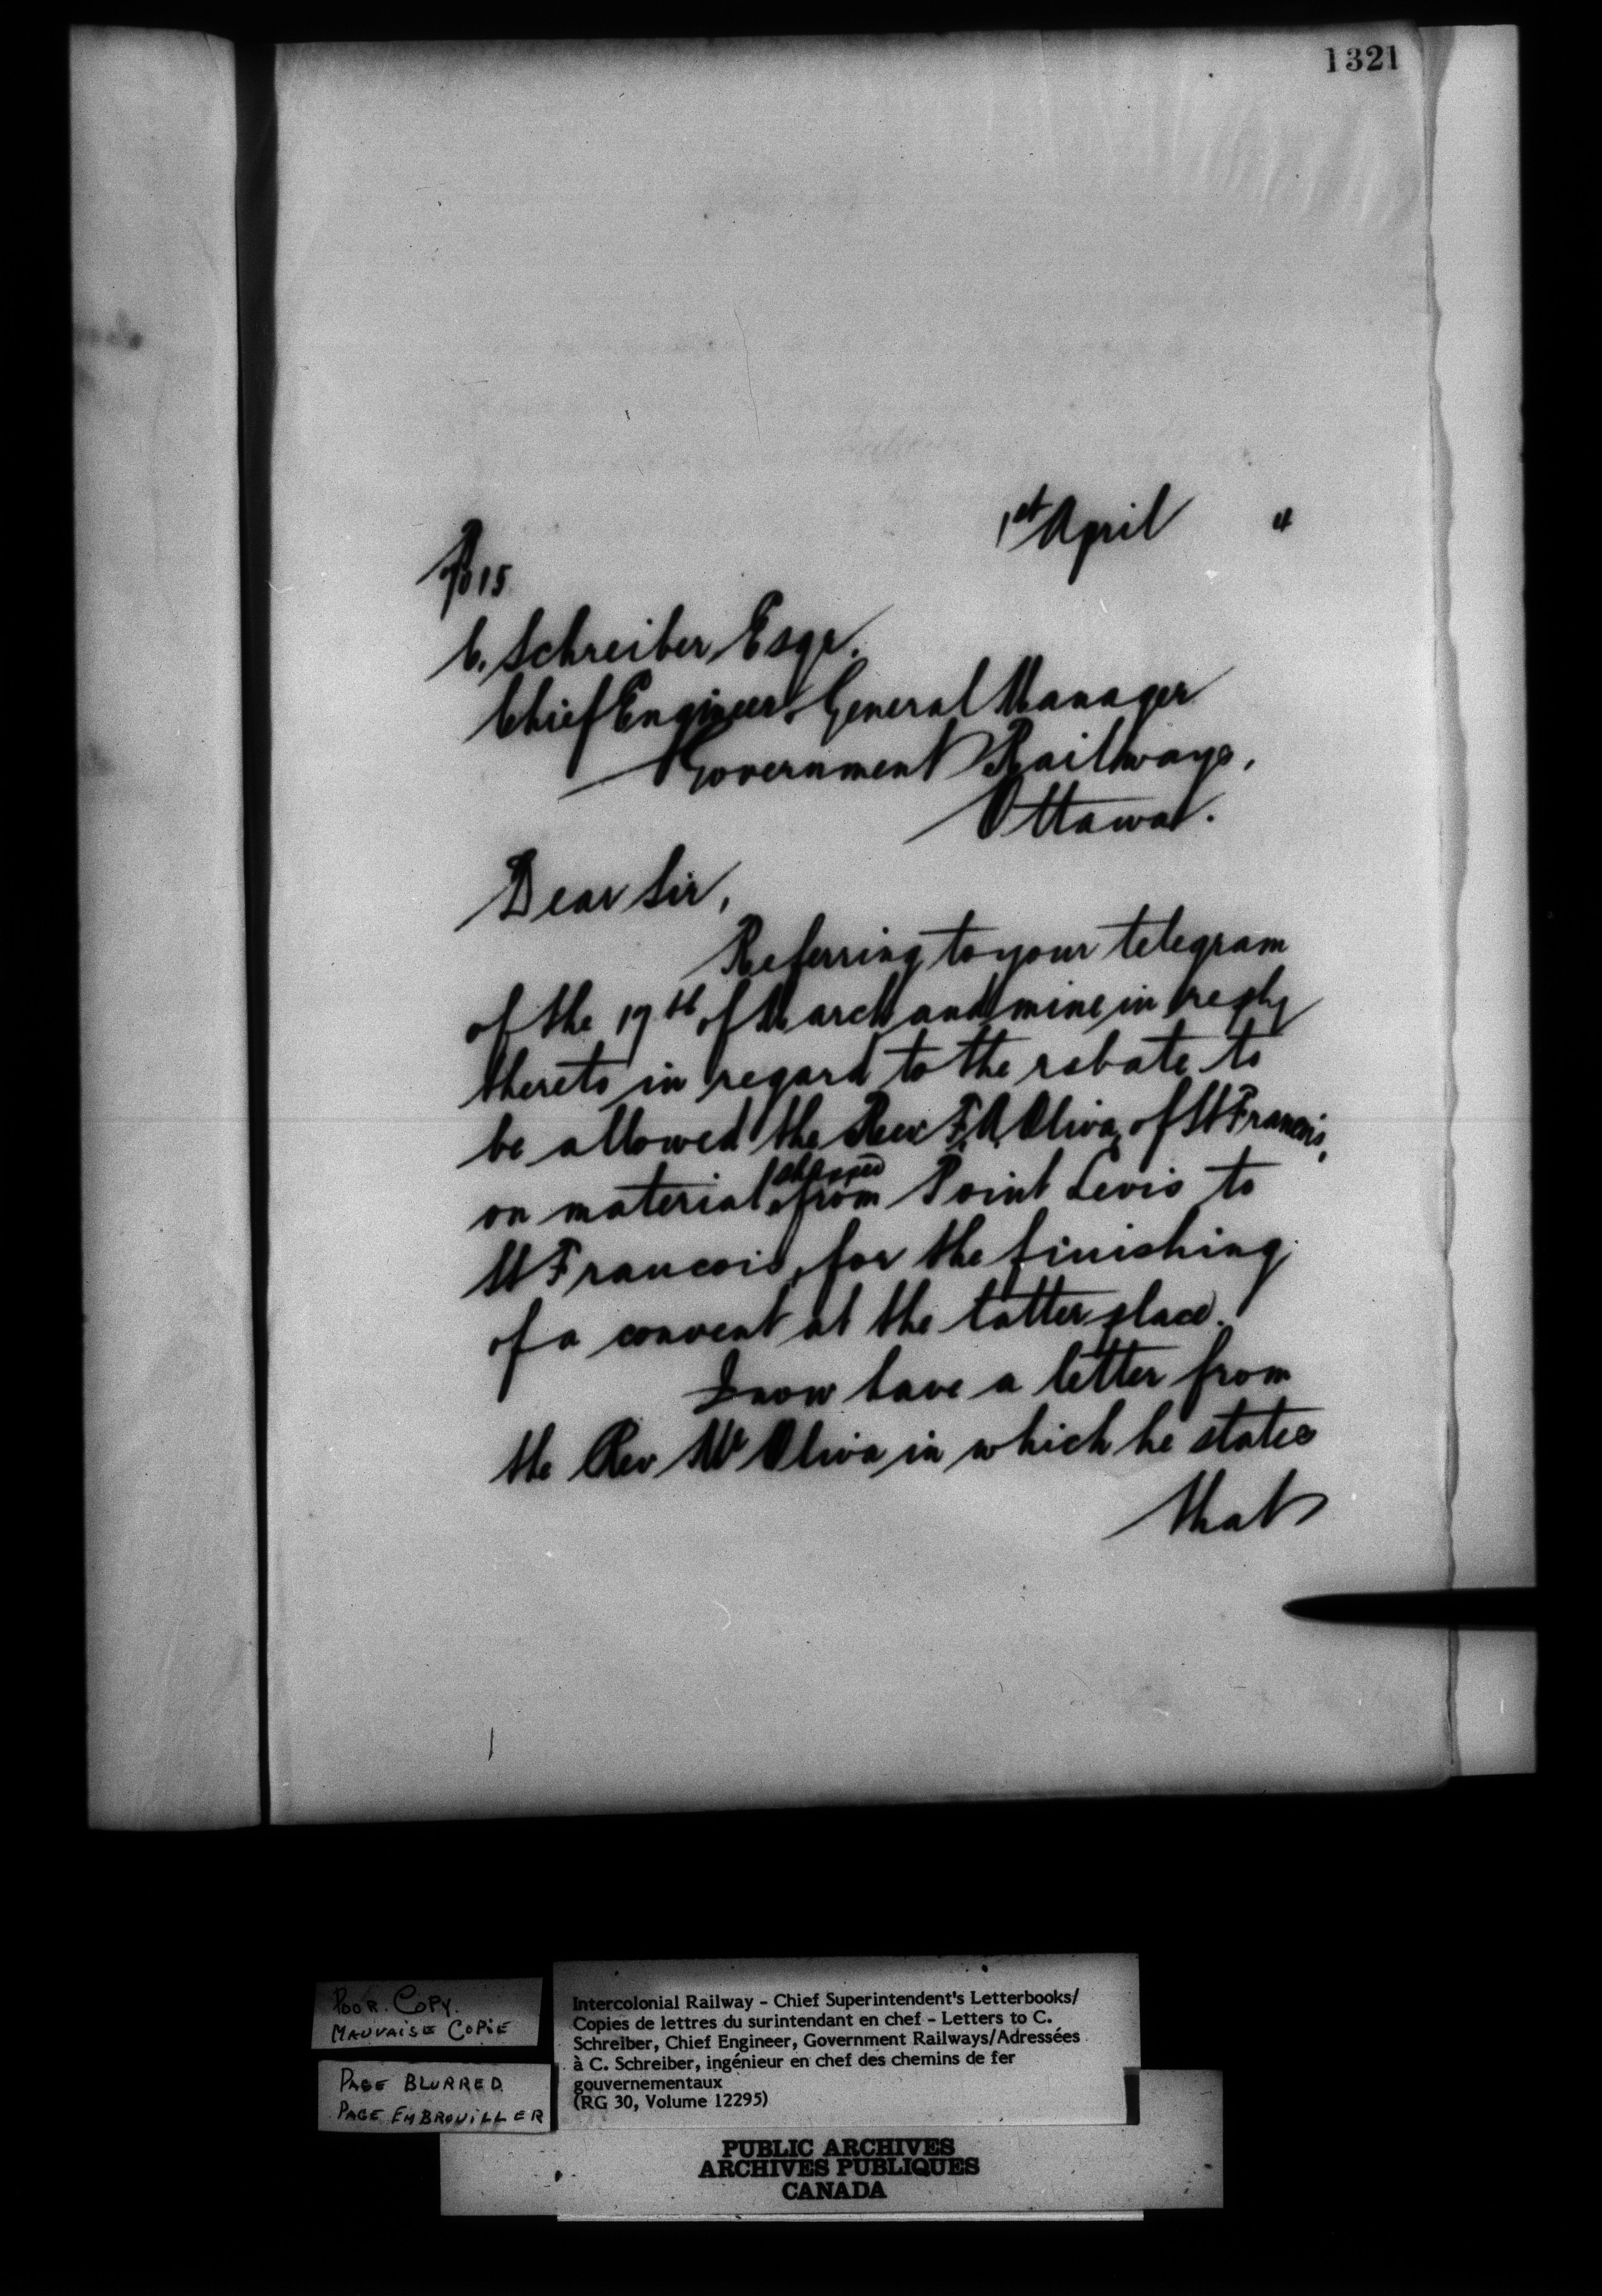 1321
1st April 4
15
C. Schreiber Esqr.
Chief Engineer & General Manager
Government Railways,
Ottawa.
Dear Sir,
Referring to your telegram
of the 19th of March and mine in reply
thereto in regard to the rebate to
be allowed the Rev F. A. Oliva, of St Francis,
shipped
on material from Point Levis to
St Francois, for the finishing
of a convent at the latter place.
I now have a letter from
the Rev Mr Oliva in which he states
that
POOR. COPY.
MAUVAISE COPIE
PAGE BLURRED
PAGE EMBROUILLER
Intercolonial Railway - Chief Superintendent's Letterbooks/
Copies de lettres du surintendant en chef - Letters to C.
Schreiber, Chief Engineer, Government Railways/Adressées
à C. Schreiber, ingénieur en chef des chemins de fer
gouvernementaux
(RG 30, Volume 12295)
PUBLIC ARCHIVES
ARCHIVES PUBLIQUES
CANADA